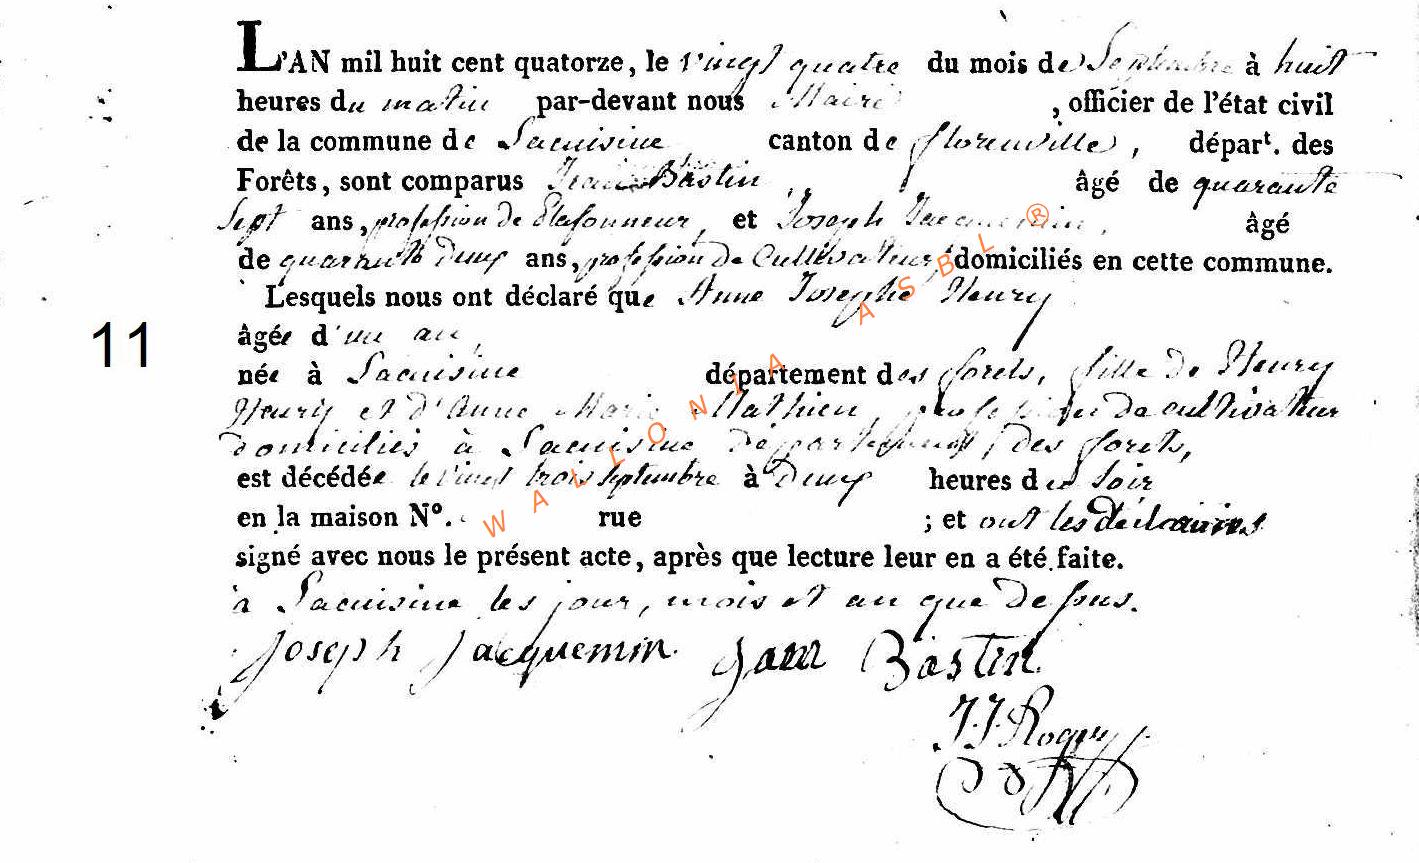 L'AN mil huit cent quatorze, le vingt quatre du mois de Septembre à huit
heures du matin par-devant nous Maire , officier de l'état civil
de la commune de Lacuisine canton de florenville , départ. des
Forêts, sont comparus Jean Bastin , âgé de quarante
Sept ans, profession de Plafonneur, et Joseph Jacquemin , âgé
de quarante deux ans, profession de Cultivateur, domiciliés en cette commune.
Lesquels nous ont déclaré que Anne Josephe Henry
âgée d'un an,
11
née à Lacuisine département des forets, fille de Henry
Henry et d'Anne Marie Mathieu, profession de cultivateur
domiciliés à Lacuisine département des forets,
est décédée le vingt trois septembre à deux heures du soir
en la maison Nº. rue ; et ont les déclarans
signé avec nous le présent acte, après que lecture leur en a été faite.
à Lacuisine les jour, mois et an que dessus.
Joseph Jacquemin Jean Bastin
J.J. Roger
WALLONIA ASBL ®